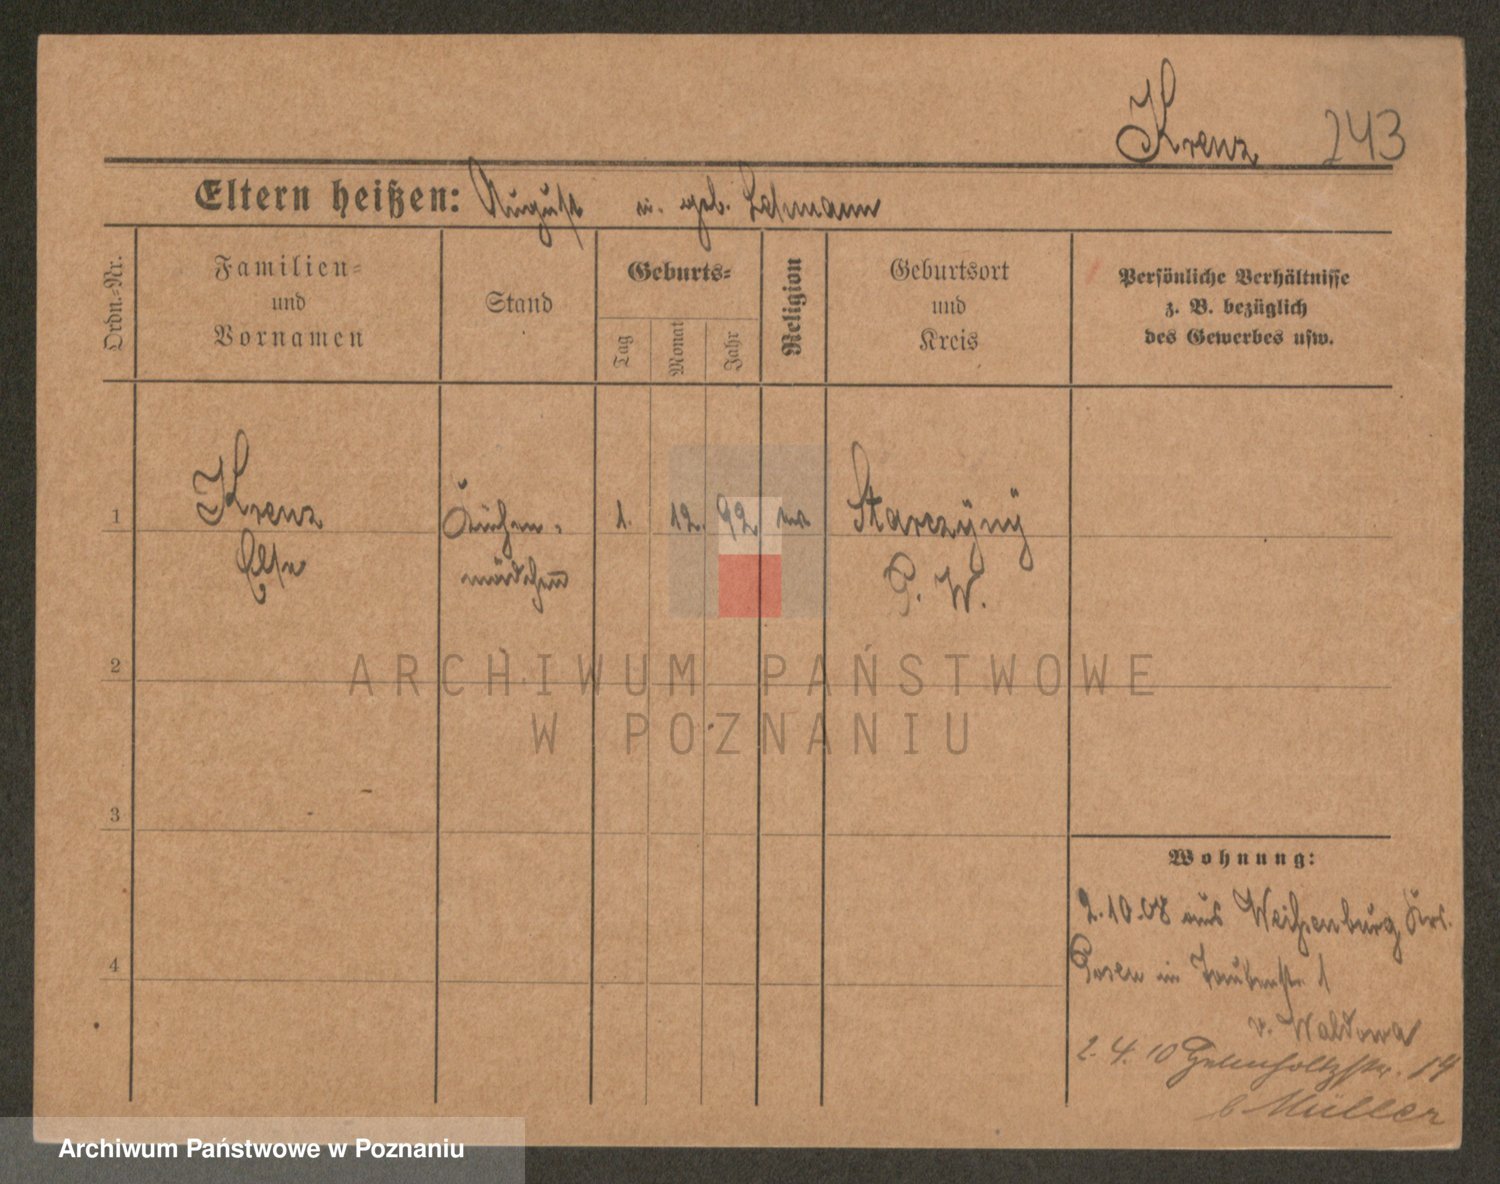 Krenz 243
Eltern heißen: August u. geb. Lehmann
Ordn.-Nr.
Familien-
und
Vornamen
Stand
Geburts-
Tag
Monat
Jahr
Religion
Geburtsort
und
Kreis
Persönliche Verhältnisse
z. B. bezüglich
des Gewerbes usw.
1 Krenz Küchen- 1. 12. 92 Starczÿnÿ
Else mädchen P. W.
2
3
4
Wohnung:
2.10.08 aus Weißenburg Krs.
Posen in Taubenstr. 1
v. Waldowa
2. 4. 10 19
b Müller
ARCHIWUM PAŃSTWOWE
W POZNANIU
Archiwum Państwowe w Poznaniu